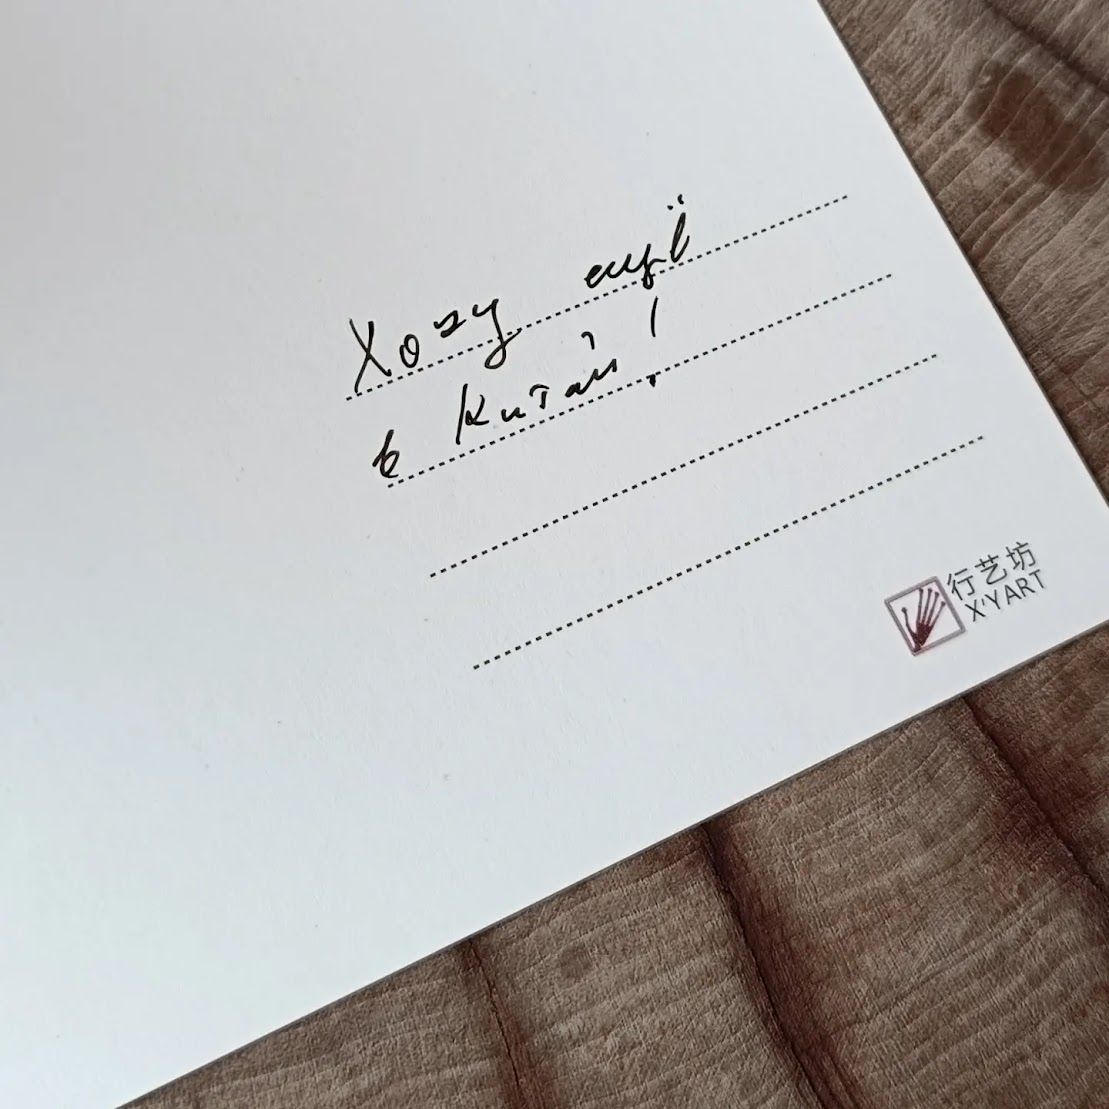 Хочу ещё
в Китай!
行艺坊
X'YART